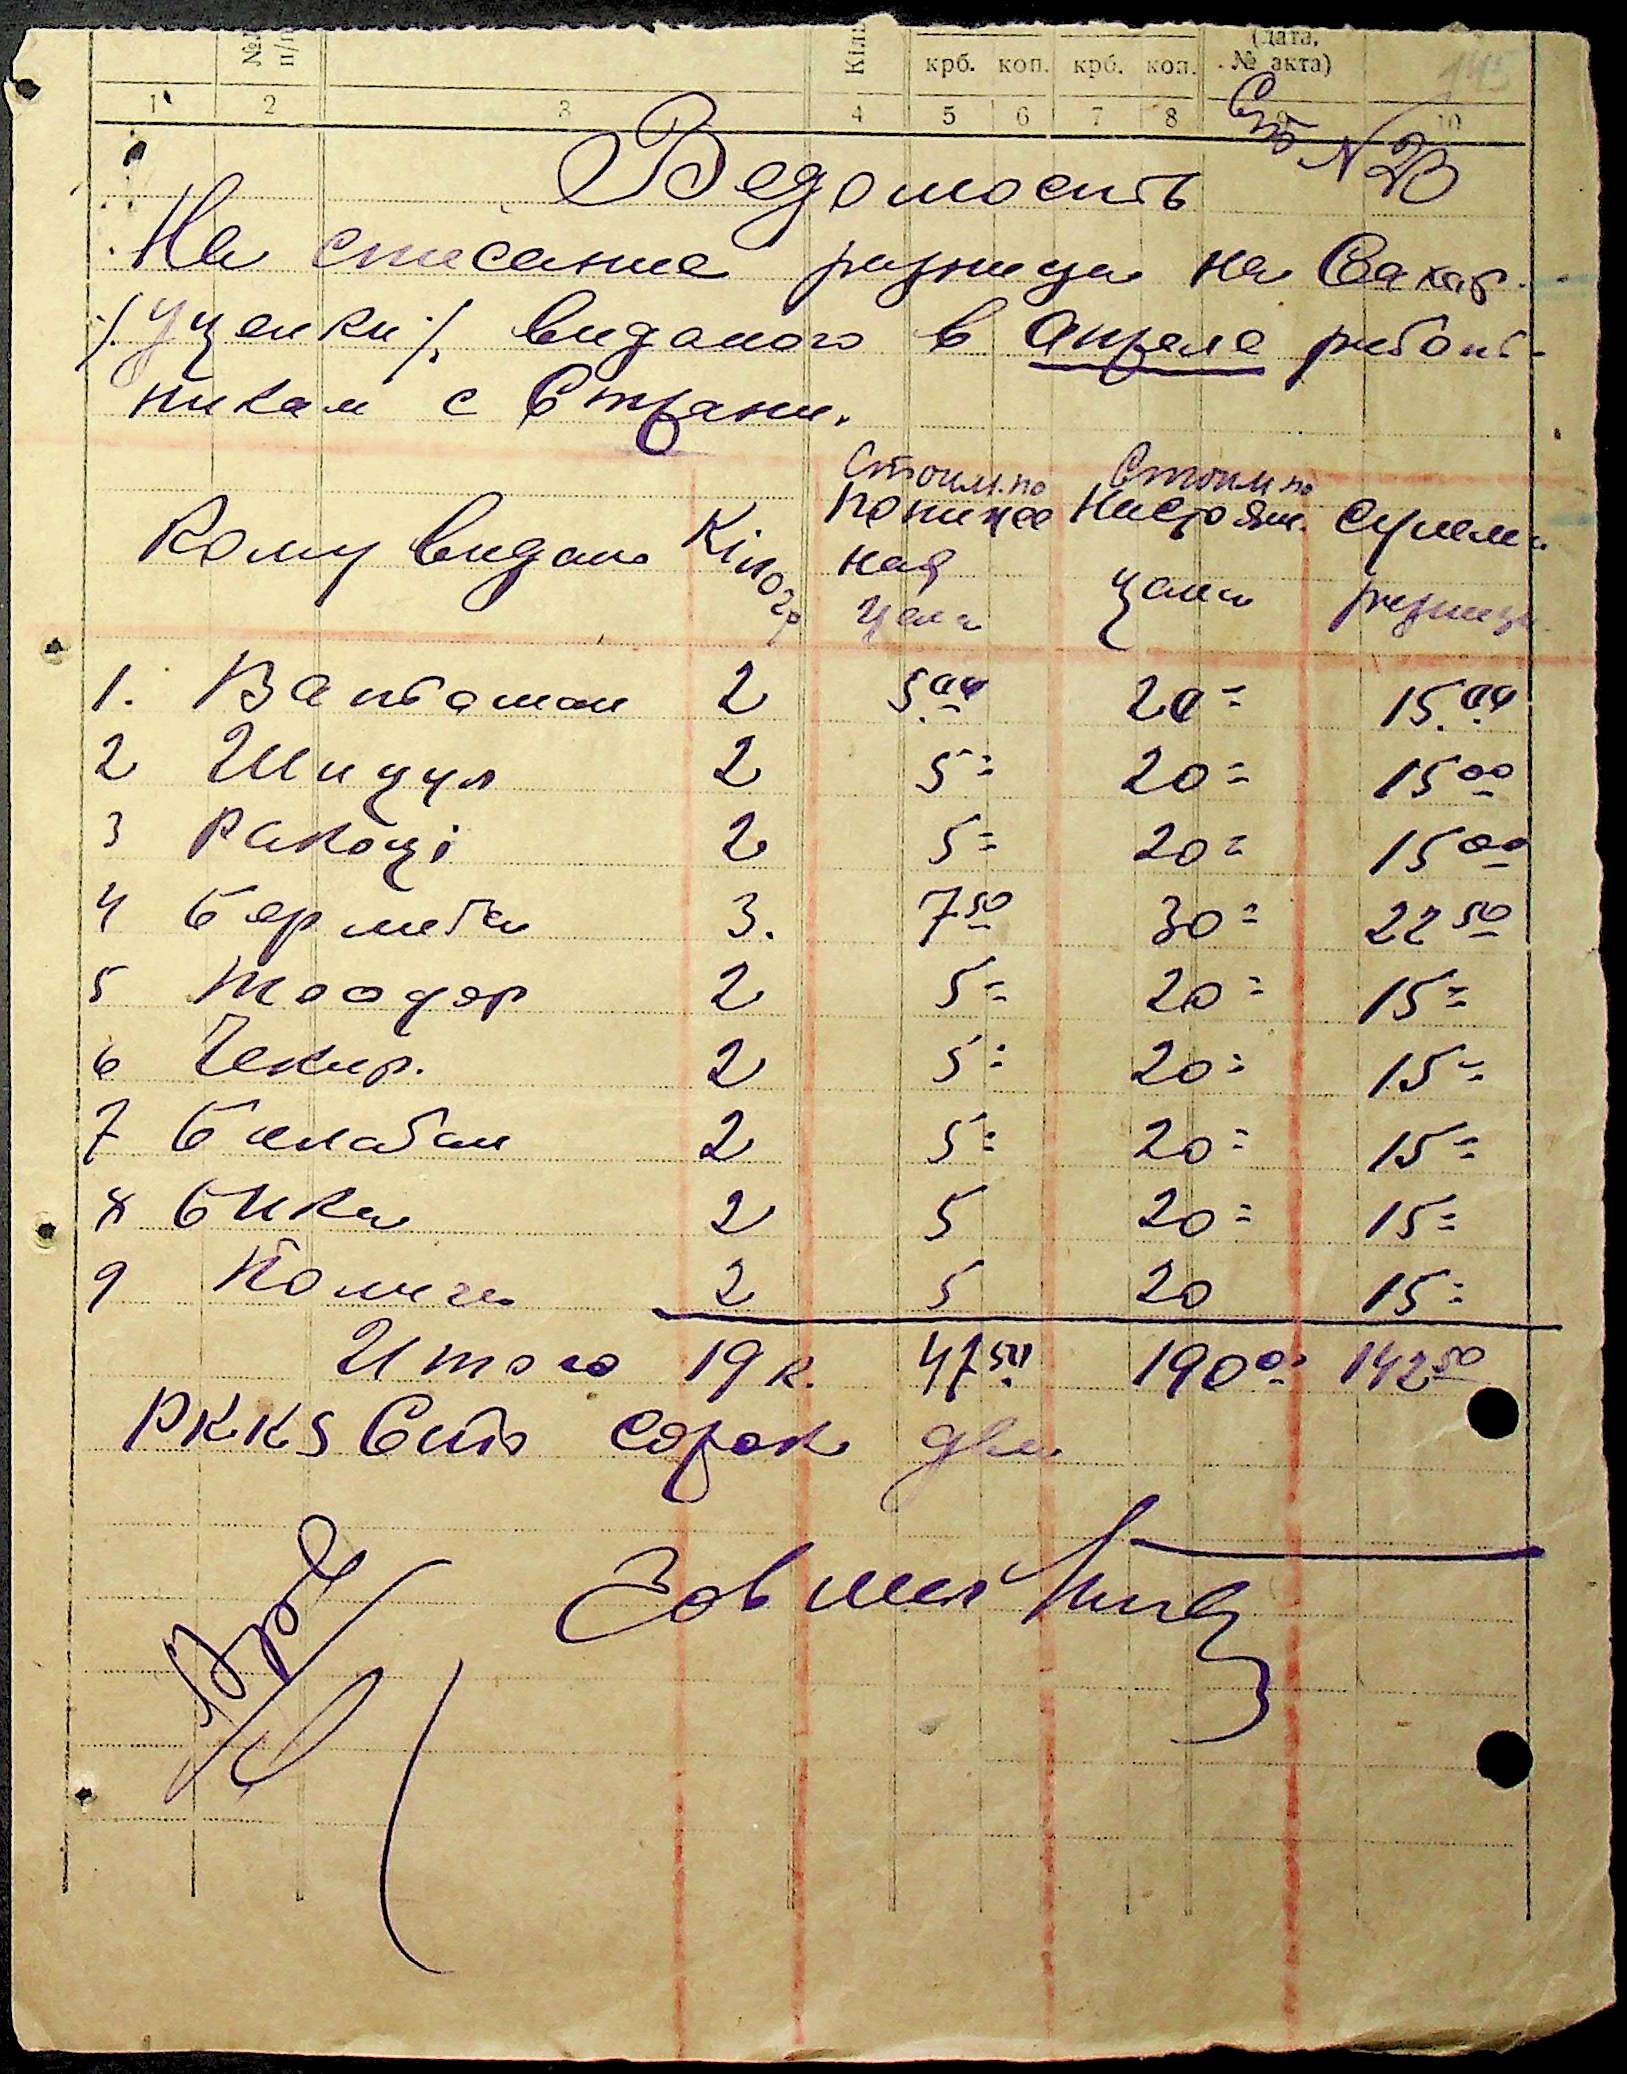 № п/п Кіль (дата, № акта)
крб. коп. крб. коп.
1 2 3 4 5 6 7 8 9 10
145
Стб N 23
Ведомость
На списание разници на Сахар.
/.Уценки/. виданого в апреле работ-
никам с Страни.
Кому видано Кілогр Стоим. по пониже ная цена Стоим по Настоящ. цени сумма разници
1. Вантаман 2 5.00 20= 15.00
2 Шицул 2 5= 20= 15 00
3 Ракоци 2 5= 20= 15 00
4 Бермега 3. 7 50 30= 22 50
5 Теодор 2 5= 20= 15=
6 Чекир. 2 5= 20= 15=
7 Балабан 2 5= 20= 15=
8 Бика 2 5 20= 15=
9 2 5 20 15=
Итого 19 к. 47 50 190 00 142 50
Сто сорок два
Зав маг